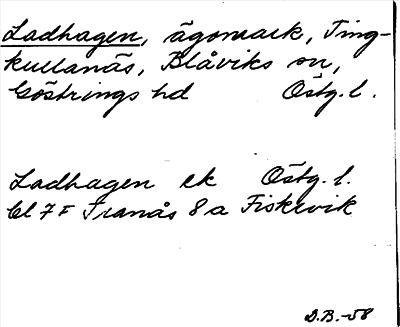 Ladhagen, ägomark, Ting-
kullanäs, Blåviks sn,
Göstrings hd Östg. l.
Ladhagen ek Östg. l.
Bl 7 F Tranås 8 a Fiskevik
D.B.-58